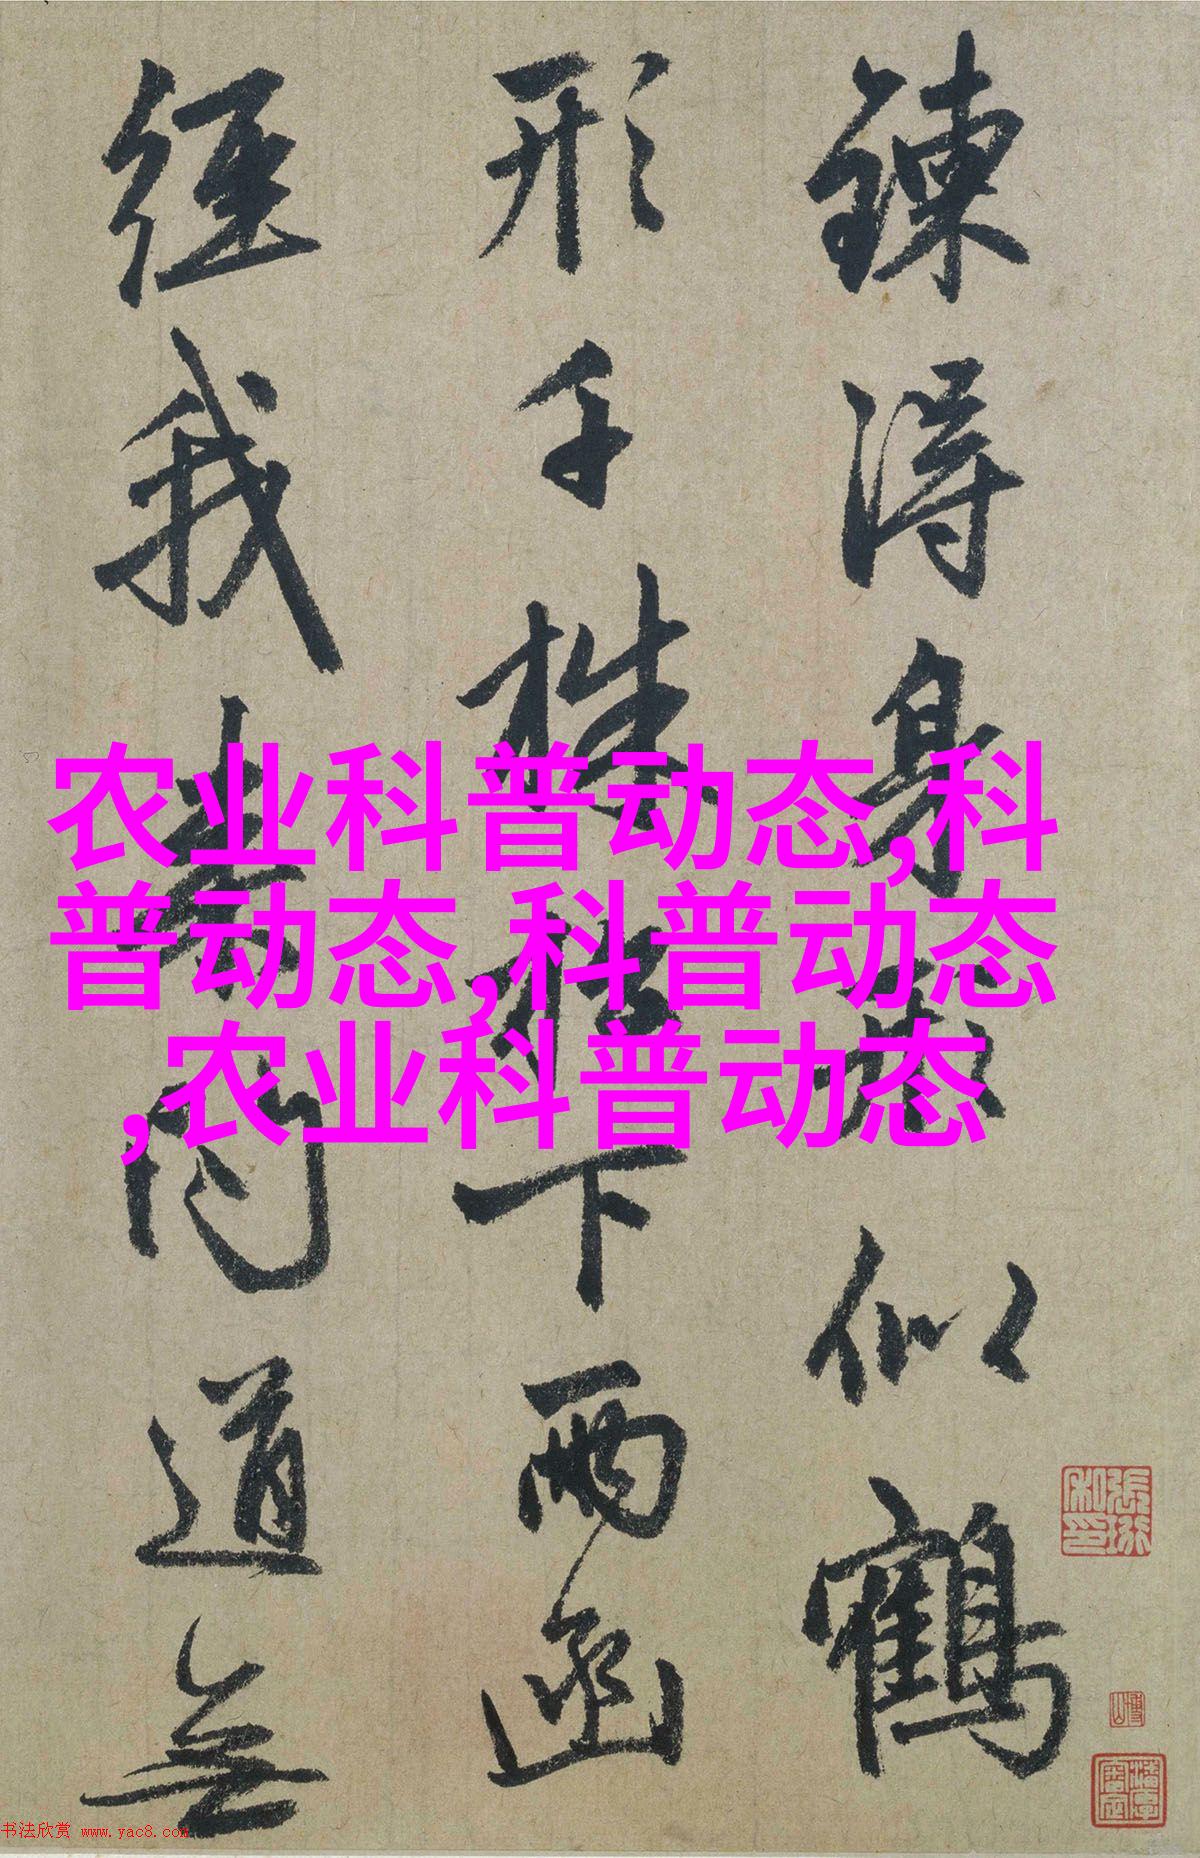 鍊得身形似鶴
形千株松下兩函
經我來問道無
农业科普动态,科
普动态,科普动态
,农业科普动态
书法欣赏 www.yac8.com